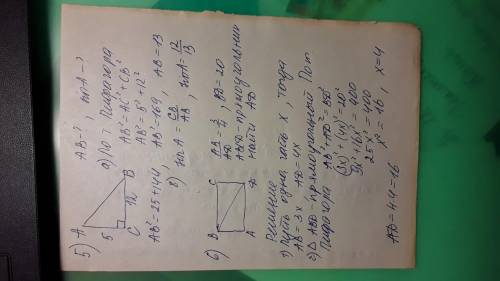 5) A 5 C 12 B
AB-?, sin A-?
а) По т Пифагора
AB² = AC² + CB²
AB² = 5² + 12²
AB² = 25 + 144, AB = 169, AB = 13
в) sin A = CB/AB, sin A = 12/13
6) B C A D
AB/AD = 3/4, BD = 20
ABCD - прямоугольник
Найти AD
Решение
1) Пусть одна часть x, тогда
AB = 3x AD = 4x
2) Δ ABD - прямоугольный По т
Пифагора AB² + AD² = BD²
(3x)² + (4x)² = 20²
9x² + 16x² = 400
25x² = 400
x² = 16, x = 4
AD = 4·4 = 16